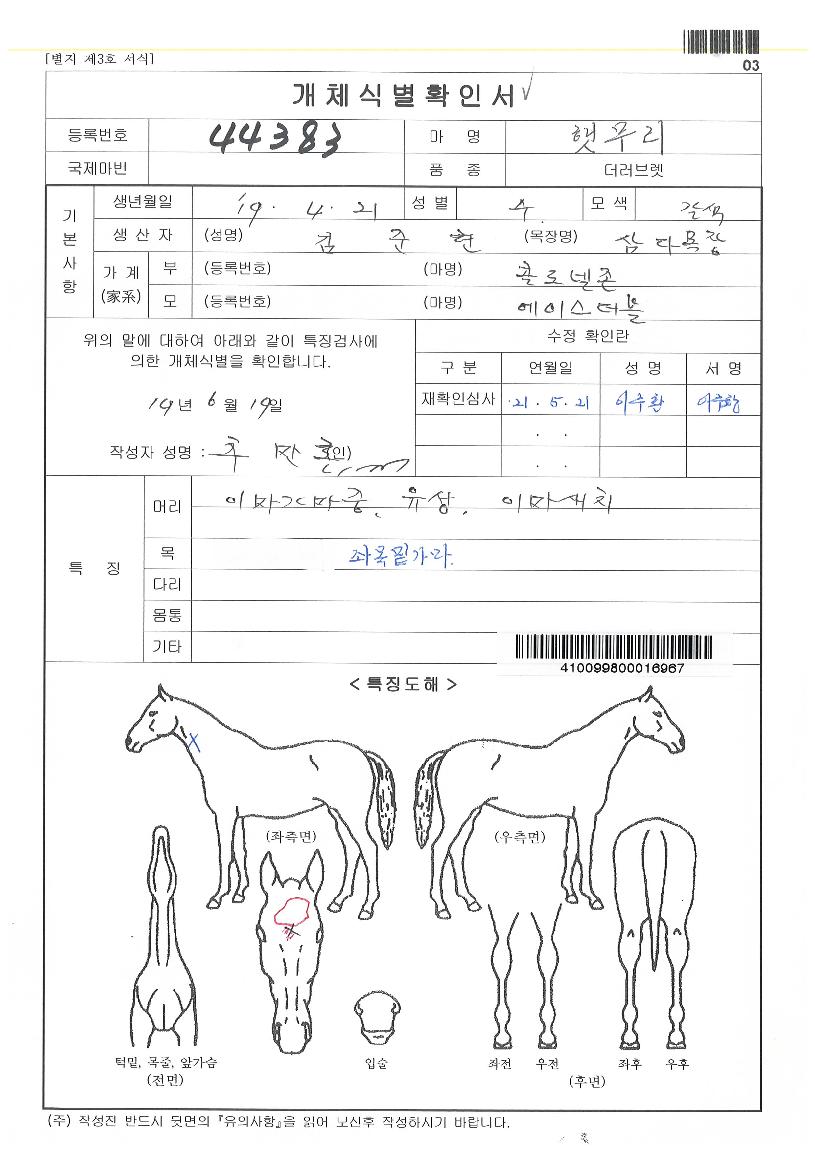 [별지 제3호 서식]
03
개체식별확인서
등록번호 44383 마 명 햇무리
국제마빈 품 종 더러브렛
기본사항
생년월일 '19. 4. 21 성별 수 모색 갈색
생산자 (성명) 김준현 (목장명) 삼다목장
가계 (家系) 부 (등록번호) (마명) 콜로넬존
모 (등록번호) (마명) 에이스더블
위의 말에 대하여 아래와 같이 특징검사에
의한 개체식별을 확인합니다.
19년 6월 19일
작성자 성명 : 인)
수정 확인란
구 분 연월일 성 명 서 명
재확인심사 '21. 5. 21 이수환 이수환
. .
. .
특 징
머리 유성.
목 좌목밑가마.
다리
몸통
기타
410099800016967
< 특징도해 >
(좌측면) (우측면)
턱밑, 목줄, 앞가슴 입술 좌전 우전 좌후 우후
(전면) (후면)
(주) 작성전 반드시 뒷면의 『유의사항』을 읽어 보신후 작성하시기 바랍니다.